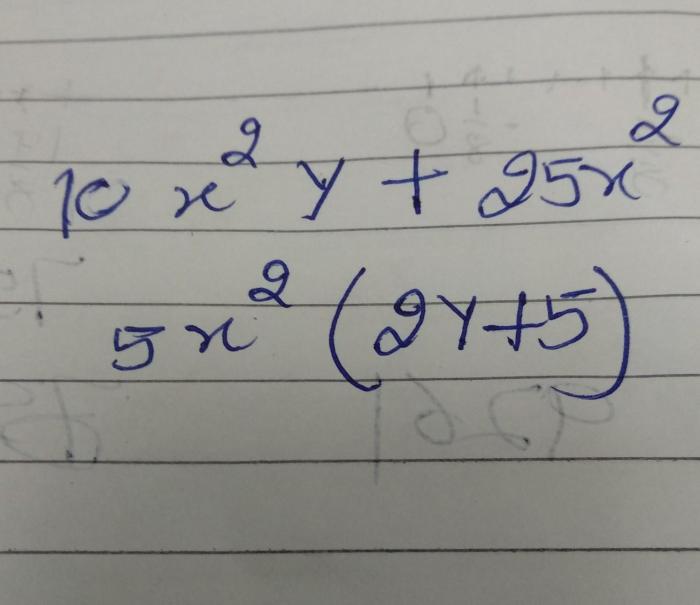 10 x² y + 25x²
5x² (2y+5)